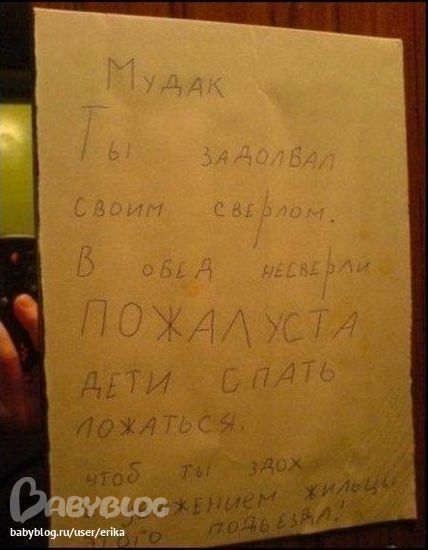 Мудак
Ты задолбал
своим сверлом.
В обед несверли
ПОЖАЛУСТА
дети спать
ложаться.
чтоб ты здох
жением жильцы
этого подьезда!
BABYBLOG
babyblog.ru/user/erika